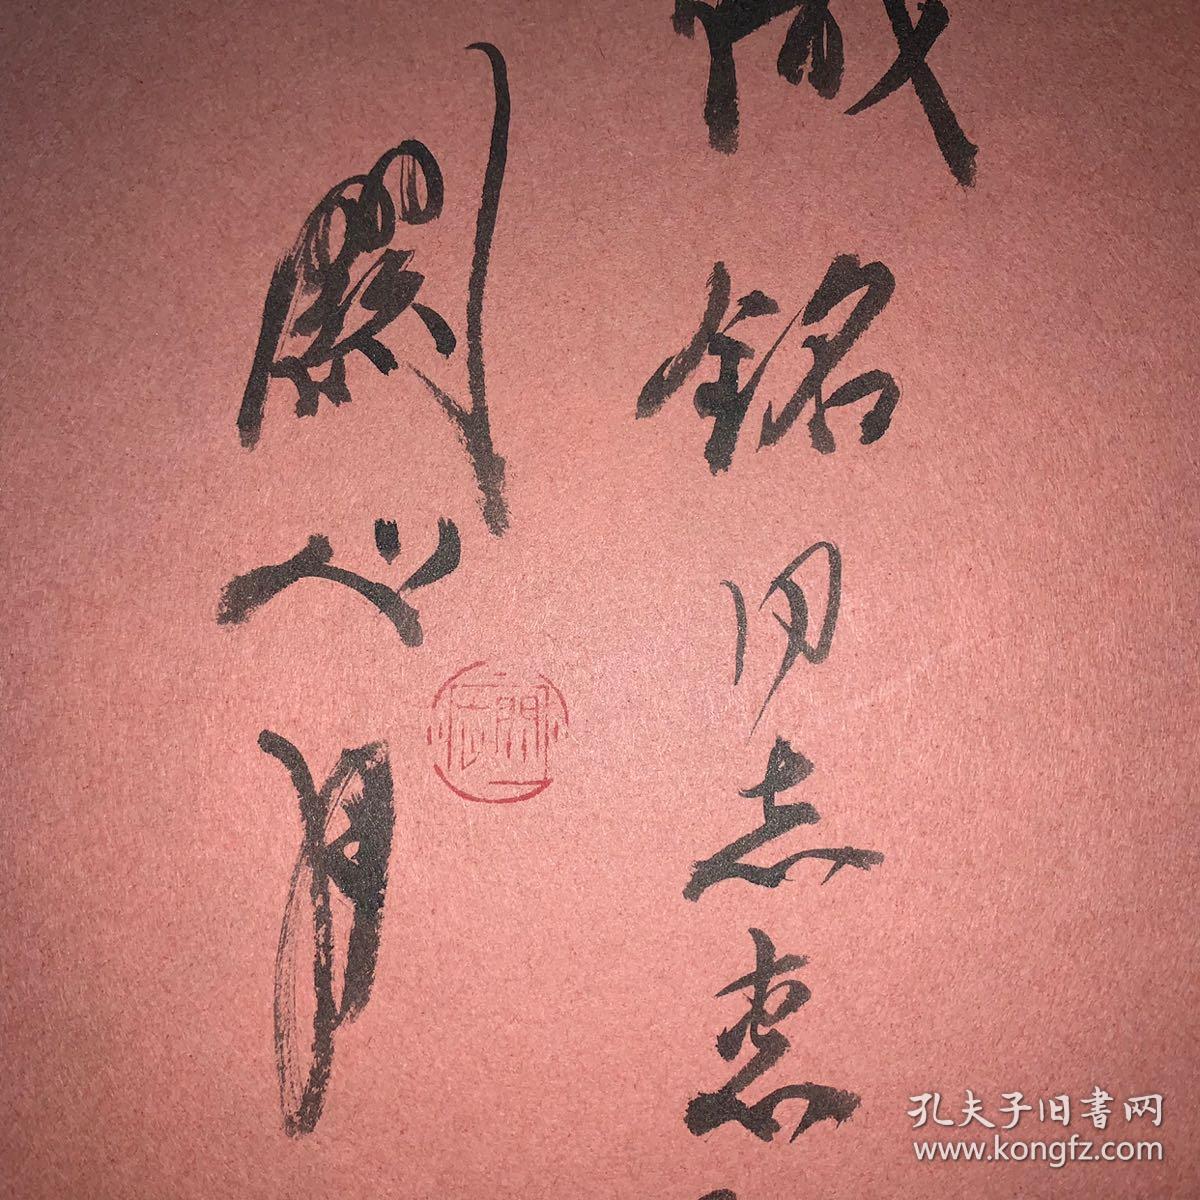 铭同志惠
關山月
孔夫子旧書网
www.kongfz.com